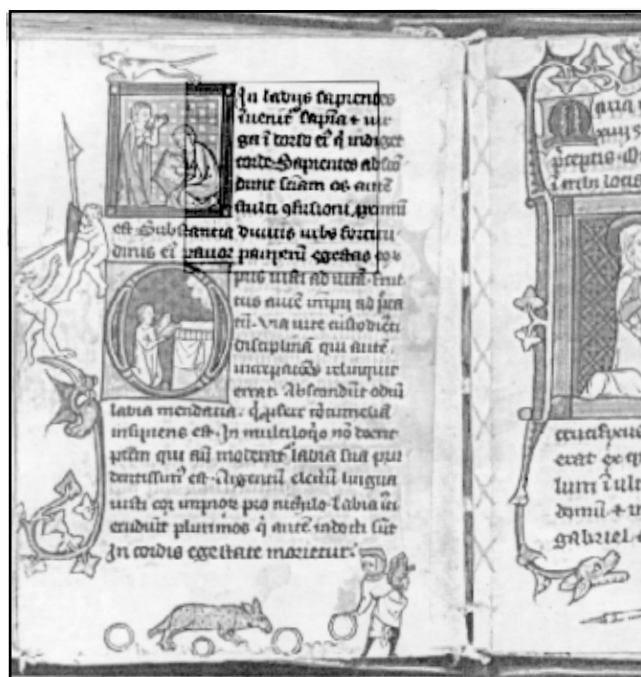 In labijs sapientes
inenit sapia + uir
ga i dorso ei q indiget
corde. Sapientes abscō
dunt sciam os autē
stulti ꝯfusioni, proximū
est. Substantia diuitis urbs fortitu
dinis ei pauor pauperū egestas eoꝝ
O pus iusti ad uitā. fruc
tus autē impii ad pcca
tū. Via uite custodiēti
disciplinā qui autē.
increpatiōes relinquit
errat. Abscondūt odiū
labia mendatia. q pfert cōtumeliā
insipiens est. In multiloqo nō deerit
pctam qui aut moderat labia sua pru
dentissim est. Argentū electū lingua
iusti cor impioꝝ pro nichilo. labia iu
erudiūt plurimos q autē indocti sūt
In cordis egestate morietur.
M aria
xuii
pceptis. 
 locis
crucifixus
erat de q
lum i ult
domū + in
gabriel